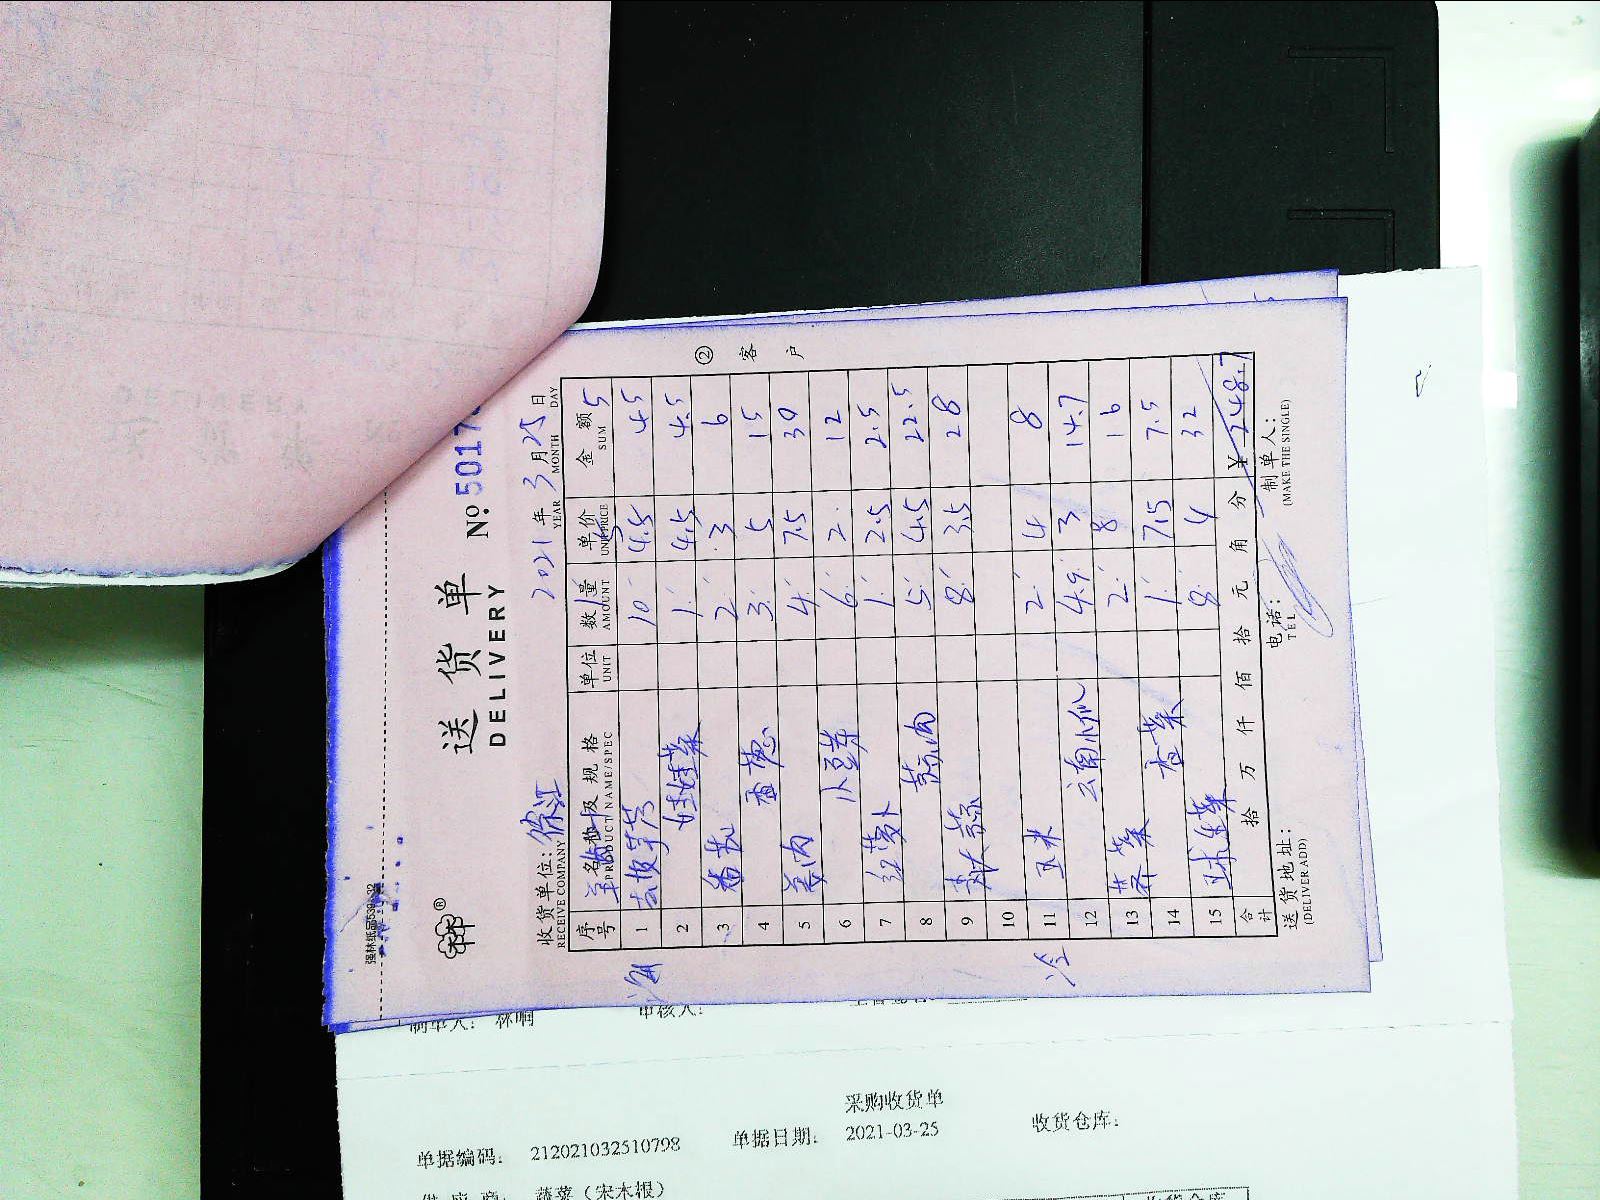 强林纸品539-32
送货单
DELIVERY
№ 5017
收货单位：徐江
RECEIVE COMPANY
2021年3月25日
YEAR MONTH DAY
② 客户
序号 名称及规格 单位 数量 单价 金额
PRODUCT NAME/SPEC UNIT AMOUNT UNIT PRICE SUM
1 5 5
1 10 4.5 45
2 娃娃菜 1 4.5 4.5
3 番茄 2 3 6
4 香葱 3 5 15
5 姜肉 4 7.5 30
6 小豆芽 6 2 12
7 红萝卜 1 2.5 2.5
8 蒜肉 5 4.5 22.5
9 大蒜 8 3.5 28
10
11 玉米 2 4 8
12 云南小瓜 4.9 3 14.7
13 芥菜 2 8 16
14 菜 1 7.5 7.5
15 球生菜 8 4 32
合计 拾 万 仟 佰 拾 元 角 分 ¥248.7
送货地址：
(DELIVER.ADD)
电话：
TEL
制单人：
(MAKE THE SINGLE)
制单人： 林响
审核人：
采购收货单
单据编码： 212021032510798
单据日期： 2021-03-25
收货仓库：
供应商： 蔬菜（宋木根）
收货仓库